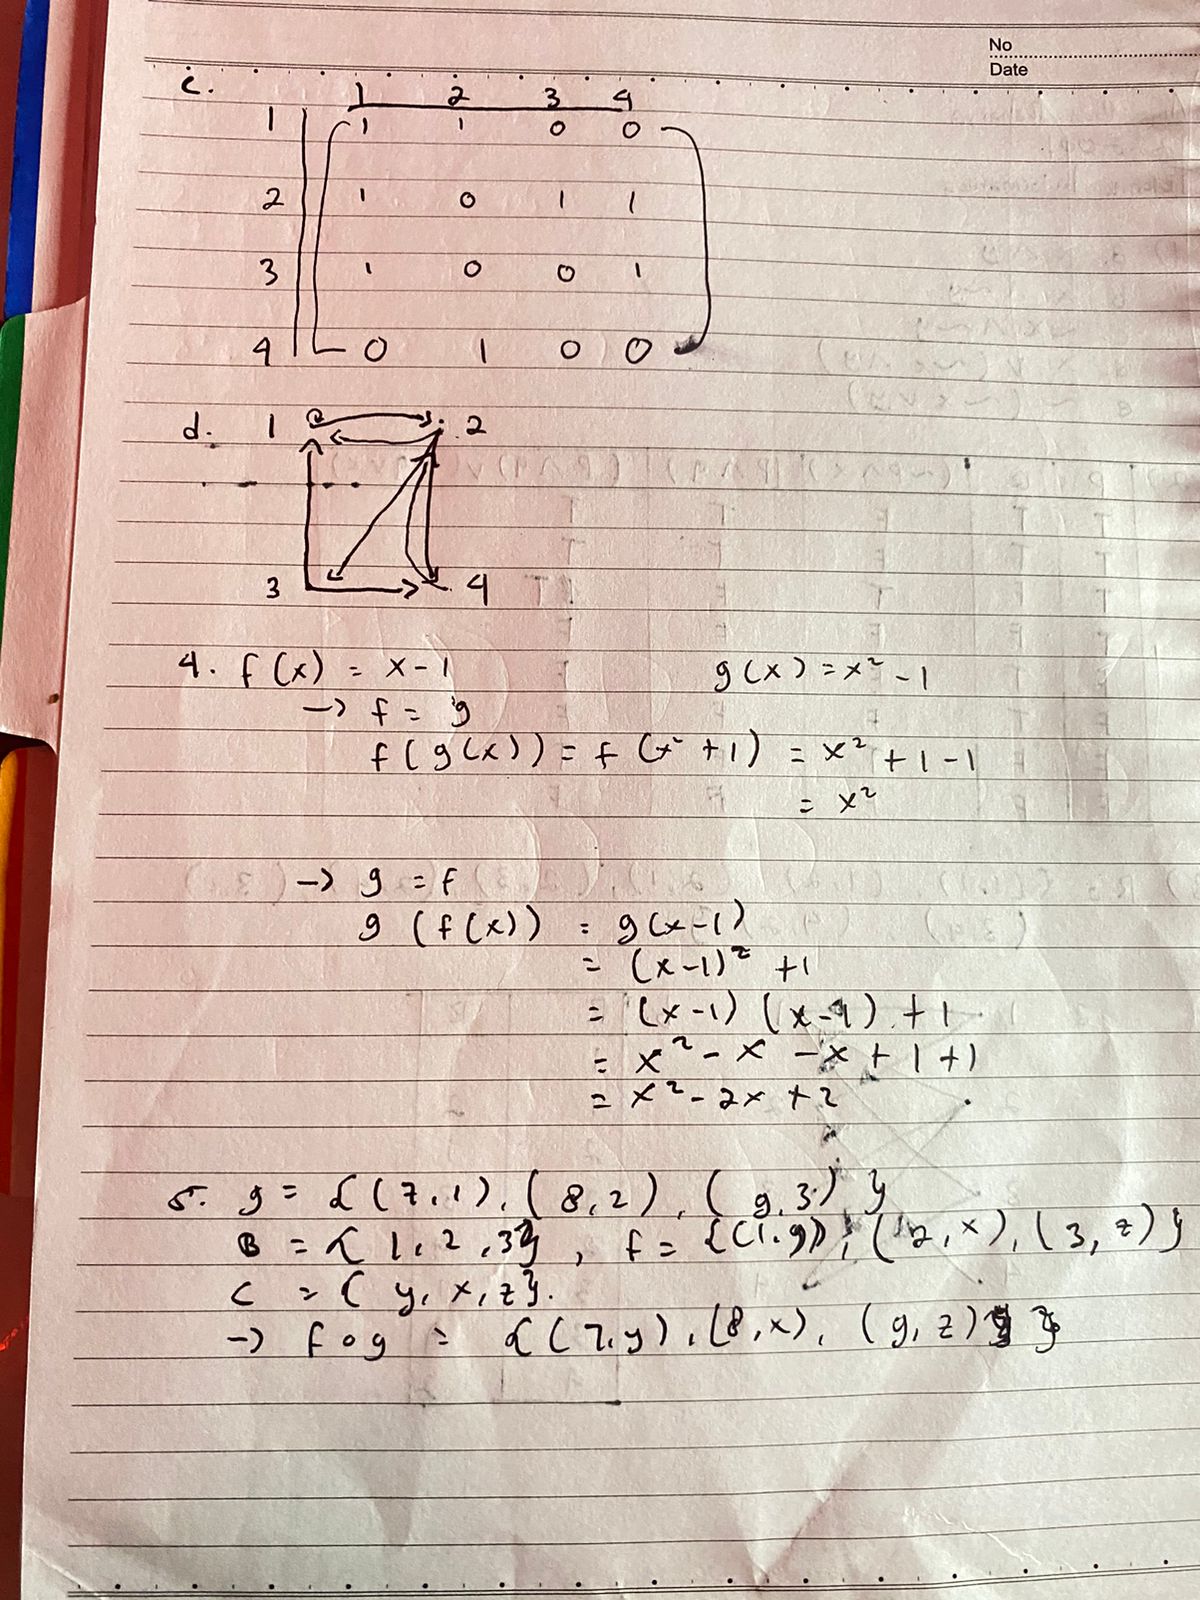 No
Date
c.
1 2 3 4
1 1 1 0 0
2 1 0 1 1
3 1 0 0 1
4 0 1 0 0
d. 1 2
3 4
4. f(x) = x - 1 g(x) = x² - 1
→ f = g
f(g(x)) = f(x² + 1) = x² + 1 - 1
= x²
→ g = f
g(f(x)) = g(x-1)
= (x-1)² + 1
= (x-1) (x-1) + 1
= x² - x - x + 1 + 1
= x² - 2x + 2
5. g = {(7,1), (8,2), (9,3)}
B = {1, 2, 3}, f = {(1,y), (2,x), (3,z)}
C = {y, x, z}.
→ f o g = {(7,y), (8,x), (9,z)}